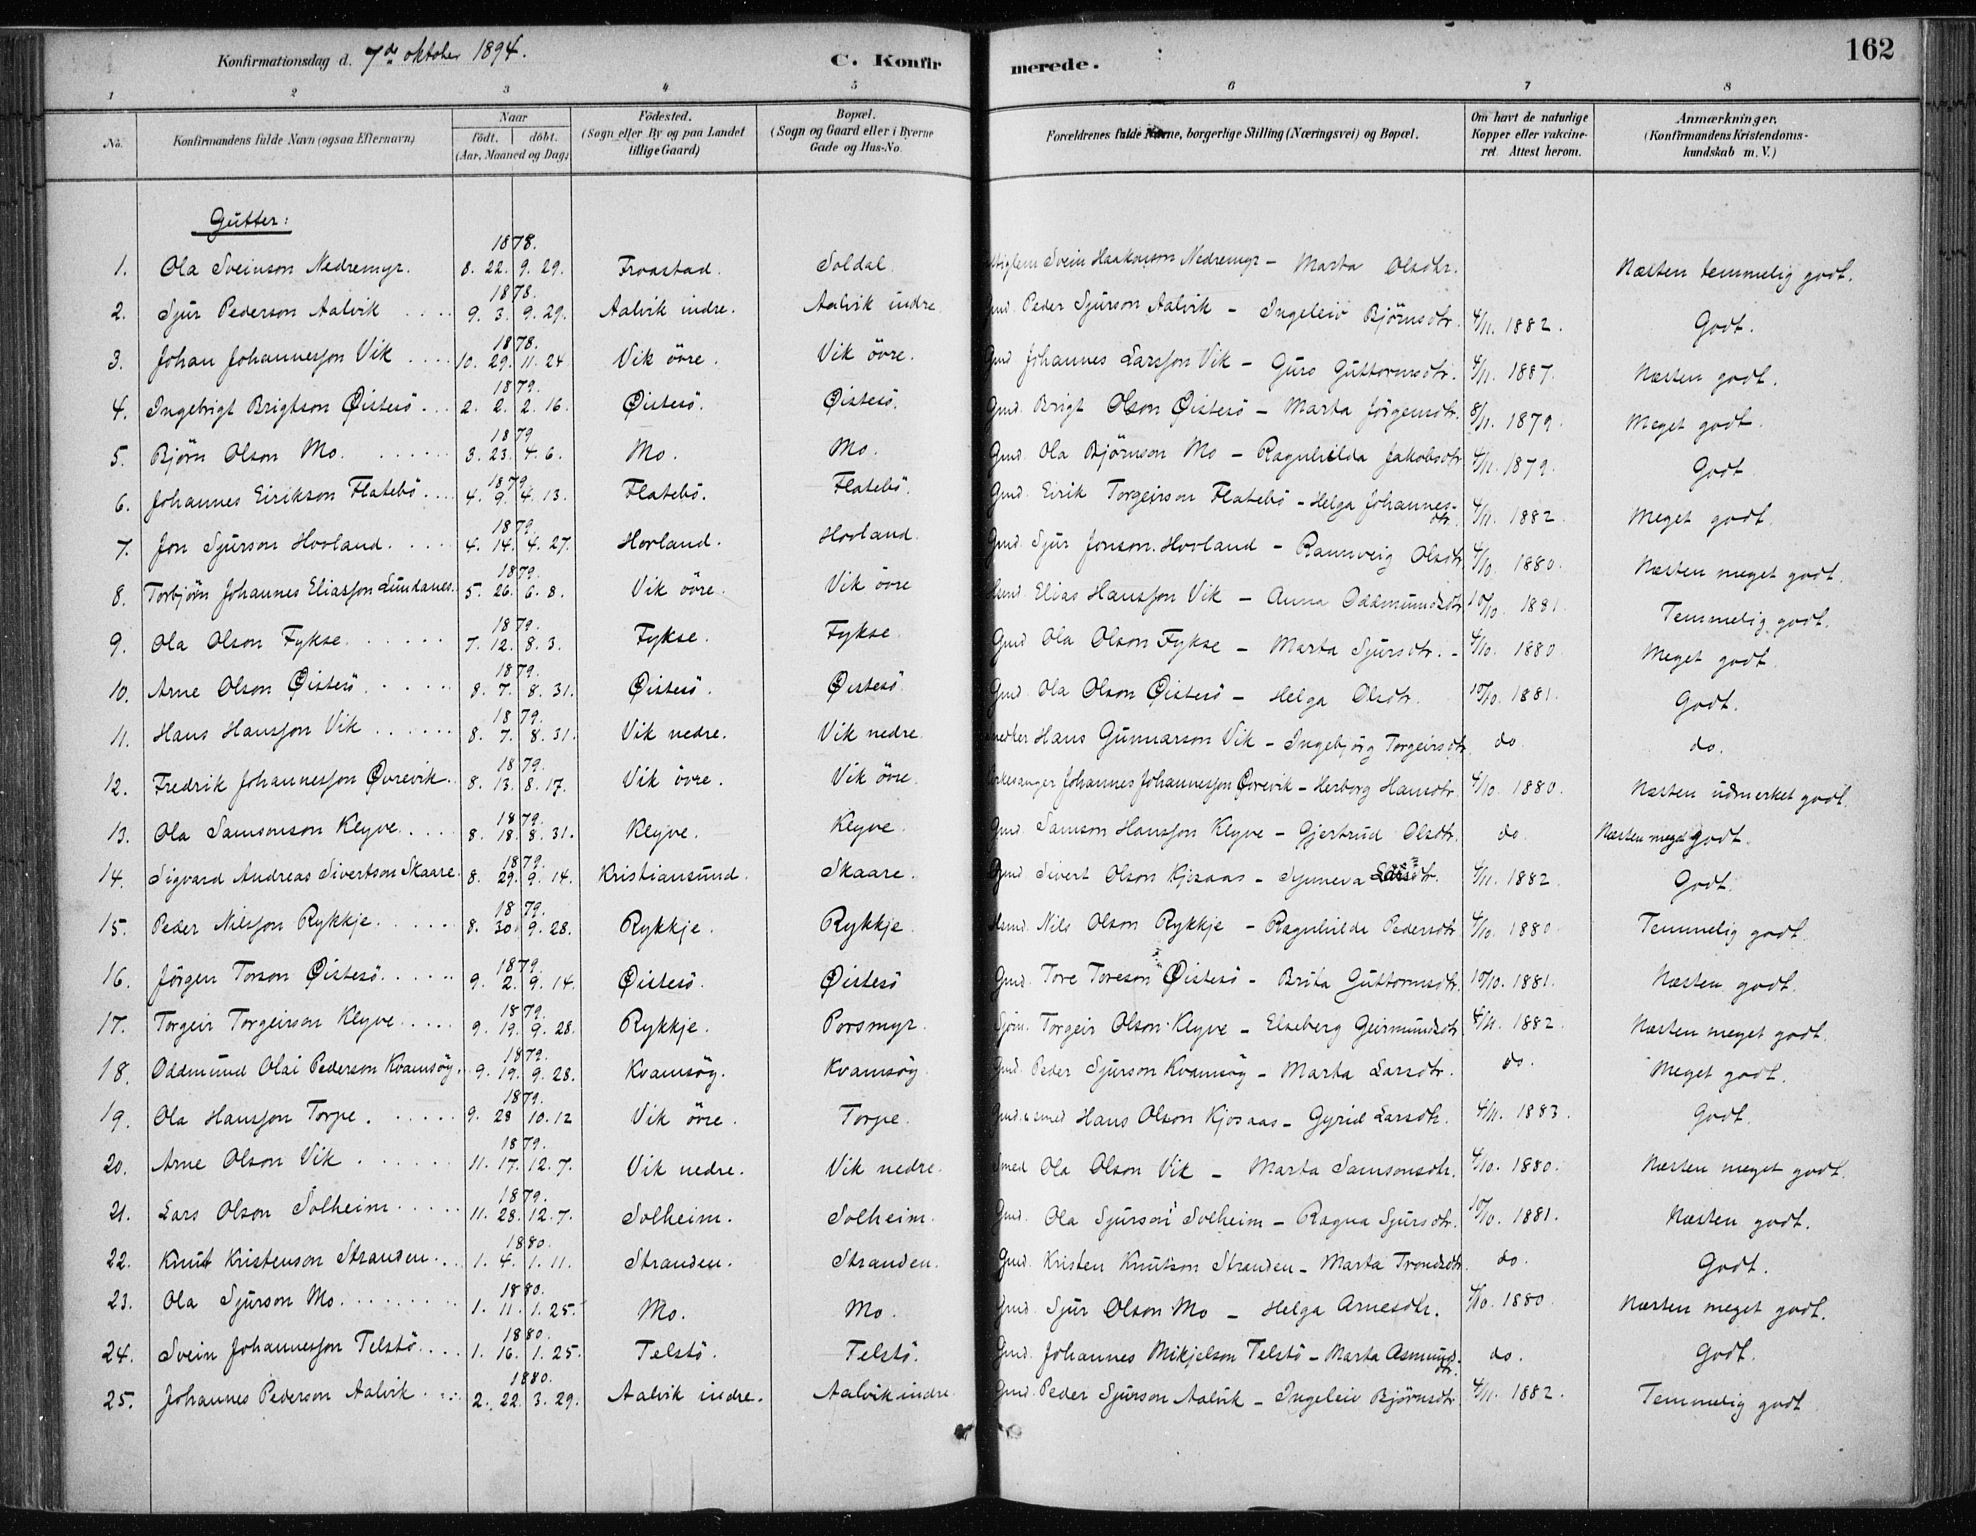 Konfirmationsdag d. 7de oktober 1894. C. Konfirmerede. 162
1 2 3 4 5 6 7 8
No. Konfirmandens fulde Navn (ogsaa Efternavn) Naar födt. döbt. (Aar, Maaned og Dag) Födested. (Sogn eller By og paa Landet tillige Gaard) Bopæl. (Sogn og Gaard eller i Byerne Gade og Hus-No. Forældrenes fulde Navne, borgerlige Stilling (Næringsvei) og Bopæl. Om havt de naturlige Kopper eller vakcineret. Attest herom. Anmærkninger. (Konfirmandens Kristendomskundskab m. V.)
Gutter:
1. Ola Sveinson Nedremyr. 1878. 8. 22. 9. 29. Froastad. Soldal. Svein Haakonson Nedremyr - Marta Olsdtr. Næsten temmelig godt.
2. Sjur Pederson Aalvik 1878. 9. 3. 9. 29. Aalvik indre. Aalvik indre. Gmd. Peder Sjurson Aalvik - Ingeleiv Björnsdtr. 4/11. 1882. Godt.
3. Johan Johannesson Vik 1878. 10. 29. 11. 24 Vik övre. Vik övre. Gmd Johannes Larsson Vik - Guro Guttormsdtr. 4/11. 1887. Næsten godt.
4. Ingebrigt Brigtson Øistesö 1879. 2. 2. 2. 16. Øistesö. Øistesö. Gmd. Brigt Olson Øistesö - Marta Jörgensdtr. 8/11. 1879. Meget godt.
5. Bjørn Olson Mo. 1879 3. 23. 4. 6. Mo. Mo. Gmd. Ola Björnson Mo - Ragnhilda Jakobsdtr 4/11. 1879. Godt
6. Johannes Eirikson Flatebö 1879. 4. 9. 4. 13. Flatebö. Flatebö. Gmd. Eirik Torgeirson Flatebö - Helga Johannesdtr. 4/11. 1882. Meget godt.
7. Jon Sjurson Hovland. 1879. 4. 14. 4. 27. Hovland. Hovland. Gmd. Sjur Jonson Hovland - Rannveig Olsdtr 4/10. 1880. Næsten meget godt.
8. Torbjörn Johannes Eliasson Lundanes. 1879. 5. 26. 6. 8. Vik övre. Vik övre Elias Hansson Vik - Anna Oddmundsdtr 10/10. 1881. Temmelig godt.
9. Ola Olson Fykse. 1879. 7. 12. 8. 3. Fykse. Fykse. Gmd Ola Olson Fykse - Marta Sjursdtr. - 4/10. 1880. Meget godt.
10. Arne Olson Øistesö 1879. 8. 7. 8. 31. Øistesö. Øistesö. Gmd. Ola Olson Øistesö - Helga Olsdtr. 10/10. 1881. Godt.
11. Hans Hansson Vik 1879. 8. 7. 8. 31. Vik nedre. Vik nedre. Hans Gunnarson Vik - Ingebjörg Torgeirsdtr. do do.
12. Fredrik Johannesson Øvrevik. 1879. 8. 13. 8. 17. Vik övre. Vik övre. Kirkesanger Johannes Johannesson Øvrevik - Herborg Hansdtr. 4/10. 1880. Næsten udmerket godt.
13. Ola Samsonson Klyve. 1879. 8. 18. 8. 31. Klyve. Klyve. Gmd. Samson Hansson Klyve - Gjertrud Olsdtr. do. Næsten meget godt.
14. Sigvard Andreas Sivertson Skaare. 1879. 8. 29. 9. 14. Kristiansund. Skaare. Gmd. Sivert Olson Kjosaas - Synneva 4/11. 1882. Godt.
15. Peder Nilsson Rykkje. 1879. 8. 30. 9. 28. Rykkje. Rykkje. Nils Olson Rykkje - Ragnhilde Pedersdtr 4/10. 1880. Temmelig godt.
16. Jörgen Torson Øistesö. 1879. 9. 2. 9. 14. Øistesö. Øistesö Gmd. Tore Toreson Øistesö - Brita Guttormsdtr. 10/10. 1881. Næsten godt.
17. Torgeir Torgeirson Klyve. 1879. 9. 19. 9. 28. Rykkje. Porsmyr. Torgeir Olson Klyve - Elseberg Geirmundsdtr 4/11. 1882. Næsten meget godt.
18. Oddmund Olai Pederson Kvamsöy. 1879. 9. 19. 9. 28. Kvamsöy. Kvamsöy. Gmd. Peder Sjurson Kvamsöy - Marta Larsdtr. do. Meget godt.
19. Ola Hansson Torpe. 1879. 9. 28 10. 12 Vik övre. Torpe. Hans Olson Kjosaas - Gyrid Larsdtr. 4/11. 1883. Godt.
20. Arne Olson Vik 1879. 11. 17. 12. 7. Vik nedre. Vik nedre. Smed Ola Olson Vik - Marta Samsonsdtr. 4/10. 1880. Næsten meget godt.
21. Lars Olson Solheim 1879. 11. 28. 12. 7. Solheim. Solheim. Gmd. Ola Sjurson Solheim - Ragna Sjursdtr. 10/10. 1881. Næsten godt.
22. Knut Kristenson Stranden. 1880. 1. 4. 1. 11. Stranden. Stranden. Gmd. Kristen Knutson Stranden - Marta Trondsdtr. do. Godt.
23. Ola Sjurson Mo. 1880. 1. 11. 1. 25. Mo. Mo. Gmd. Sjur Olson Mo - Helga Arnesdtr. 4/10. 1880. Næsten meget godt.
24. Svein Johannesson Telstö 1880. 1. 16. 1. 25. Telstö. Telstö. Gmd. Johannes Mikjelson Telstö - Marta Asmundsdtr. do. Godt.
25. Johannes Pederson Aalvik 1880. 2. 22. 3. 29. Aalvik indre. Aalvik indre. Gmd. Peder Sjurson Aalvik - Ingeleiv Björnsdtr 4/11. 1882. Temmelig godt